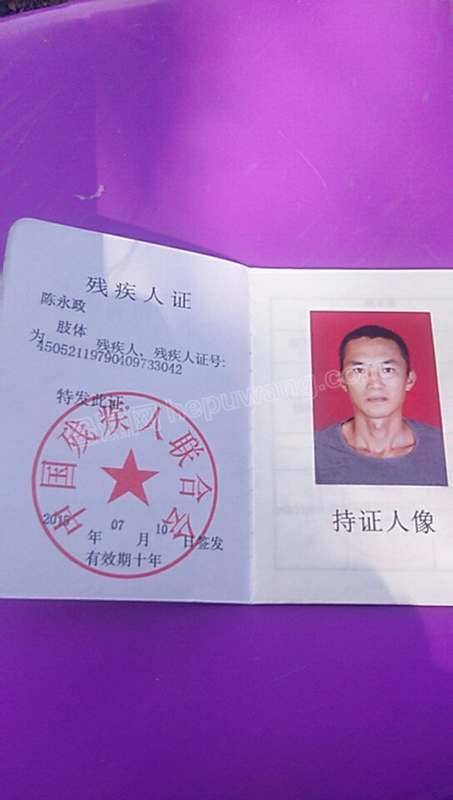 残疾人证
陈永政
肢体
为 残疾人、残疾人证号:
45052119790409733042
特发此证
中国残疾人联合会
2015年07月10日签发
有效期十年
持证人像
hepuwang.co